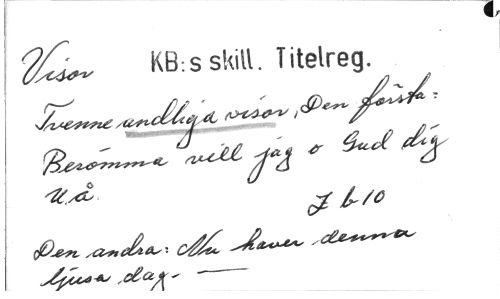 Visor KB:s skill. Titelreg.
Tvenne andliga visor, Den första:
Berömma vill jag o Gud dig
U.å.
J b 10
Den andra: Nu haver denna
ljusa dag. —